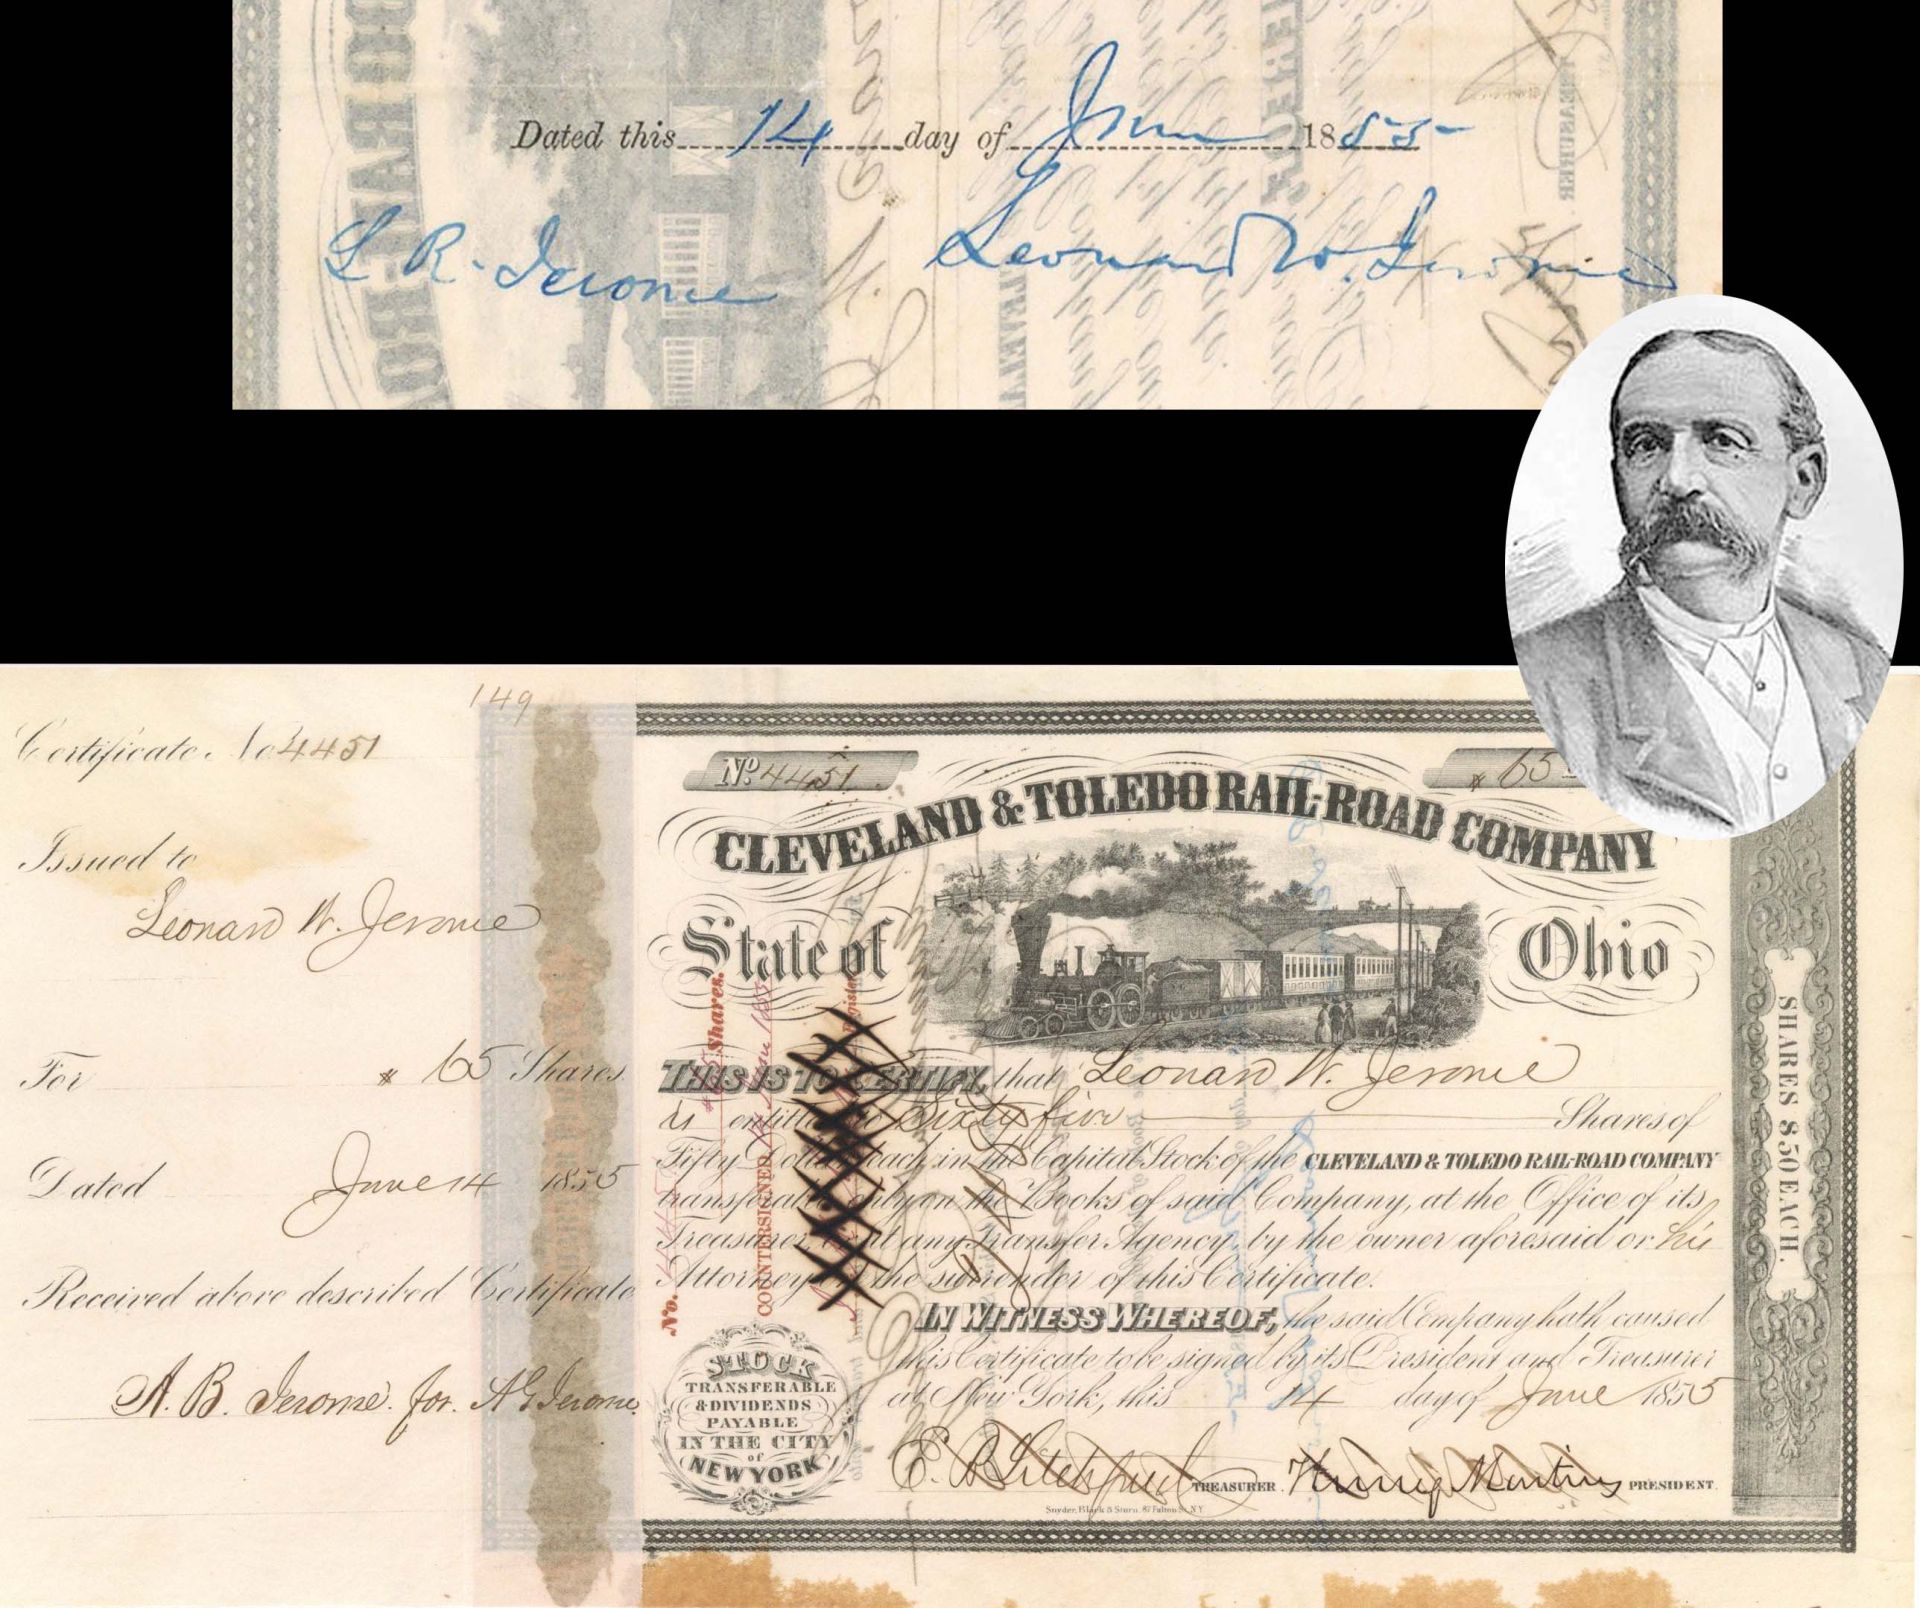 Dated this 14 day of June 1855
L R. Jerome Leonard W. Jerome
149
Certificate No 4451
Issued to
Leonard W. Jerome
For 65 Shares
Dated June 14 1855
Received above described Certificate
A. B. Jerome. for. A G Jerome.
No. 4451. 65
CLEVELAND & TOLEDO RAIL-ROAD COMPANY
State of Ohio
THIS IS TO CERTIFY, that Leonard W. Jerome
is entitled to Sixty five Shares of
Fifty Dollars each in the Capital Stock of the CLEVELAND & TOLEDO RAIL-ROAD COMPANY
transferable only on the Books of said Company, at the Office of its
Treasurer, or at any Transfer Agency, by the owner aforesaid or his
Attorney on the surrender of this Certificate.
IN WITNESS WHEREOF, the said Company hath caused
this Certificate to be signed by its President and Treasurer
at New York, this 14 day of June 1855
TREASURER. PRESIDENT.
Snyder, Black & Sturn, 87 Fulton St. N.Y.
STOCK
TRANSFERABLE
& DIVIDENDS
PAYABLE
IN THE CITY
of
NEW YORK
SHARES $50 EACH.
Shares.
COUNTERSIGNED
No.